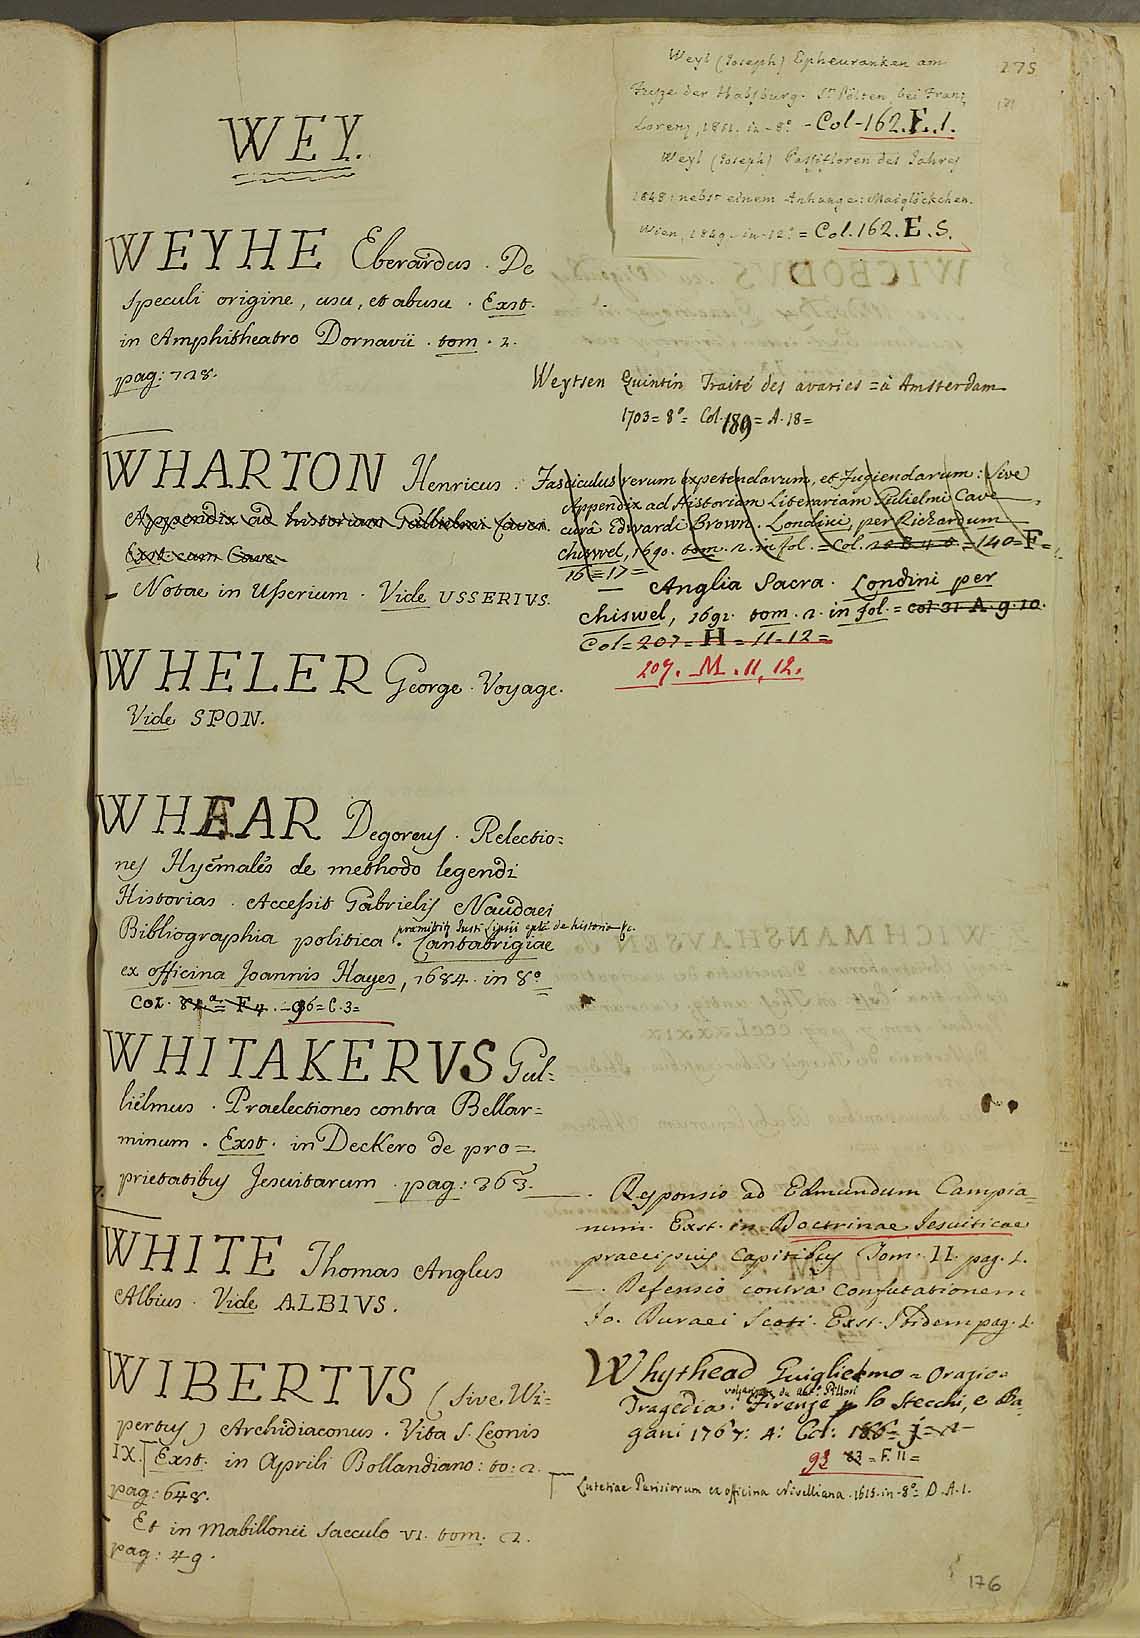 275
Weyl (Joseph) Epheuranken am
Fusze der Habsburg. St Pölten, bei Franz
Lorenz, 1851. in-8º - Col-162.E.1.
Weyl (Joseph) Passifloren des Jahres
1848: nebst einem Anhange: Maiglöckchen.
Wien, 1849. in-12º = Col.162.E.S.
WEY.
WEYHE Eberardus. De
speculi origine, usu, et abusu. Exst.
in Amphitheatro Dornavii. tom. 2.
pag: 728.
Weytsen Quintin Traité des avaries = à Amsterdam
1703= 8º= Col.189= A.18=
WHARTON Henricus.
Appendix ad historiam Gulielmi Cave.
Exst. cum Cave.
- Notae in Usserium. Vide USSERIVS.
Fasciculus rerum expetendarum, et fugiendarum: Sive
Appendix ad Historiam Literariam Gulielmi Cave
curâ Edwardi Brown. Londini, per Richardum
chiswel, 1690. tom. 2. in fol. = Col. = 140=F=
16=17=
— Anglia Sacra. Londini per
chiswel, 1691. tom. 2. in fol. = Col 31 A.9.10.
Col=207=H=11-12=
207. M. 11, 12.
WHELER George. Voyage.
Vide SPON.
WHEAR Degoreus. Relectio=
nes Hyemales de methodo legendi
Historias. Accessit Gabrielis Naudaei
Bibliographia politica. Cantabrigiae
praemittitur Justi Lipsii epla de historia &c.
ex officina Joannis Hayes, 1684. in 8º
Col. F 4. 96=C.3=
WHITAKERVS Gul=
lielmus. Praelectiones contra Bellar=
minum. Exst. in Deckero de pro=
prietatibus Jesuitarum. pag: 363.
—. Responsio ad Edmundum Campia=
num. Exst. in Doctrinae Jesuiticae
praecipuis Capitibus Tom. II. pag. 1.
—. Defensio contra Confutationem
Jo. Duraei Scoti. Exst. Ibidem pag. 1.
WHITE Thomas Anglus
Albius. Vide ALBIVS.
WIBERTVS (sive Wi=
pertus) Archidiaconus. Vita S. Leonis
IX. Exst. in Aprili Bollandiano: to: 2.
pag: 648.
Et in Mabillonii saeculo VI. tom. 2.
pag: 49.
Whythead Guiglielmo = Orazio=
Tragedia: volgarizz. da Ant. Pillori Firenze p lo Stecchi, e Pa=
gani 1767: 4: Col:
93 83 = F. 11=
Lutetiae Parisiorum ex officina Nivelliana. 1615. in-8º= D.A.1.
176